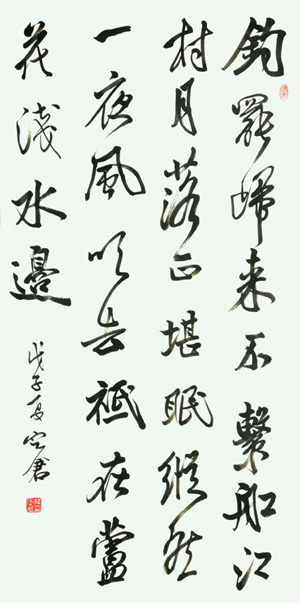 釣罷歸来不繫船江
村月落正堪眠縱然
一夜風吹去祗在蘆
花淺水邊
戊子夏空倉